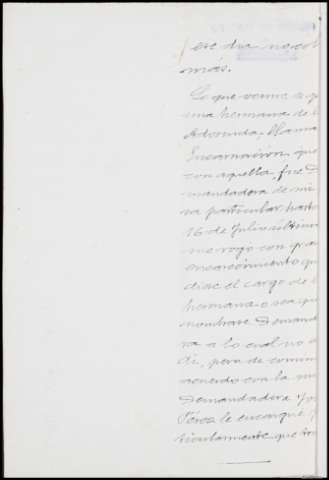 ese dia no vol
más.
Lo que ocurre es q
una hermana de l
Adoninda, llama
Encarnación, que
con aquella, fue D
mandadera de mi
ra particular, hasta
16 de Julio último
me rogo con gran
encarecimiento qu
diac el cargo de l
hermana o sea que
nombrase Demanda
ra a lo cual no a
di, pero de comun
acuerdo con la mi
Demandadera, Yo
Pérez le encargué p
ticularmente que tra